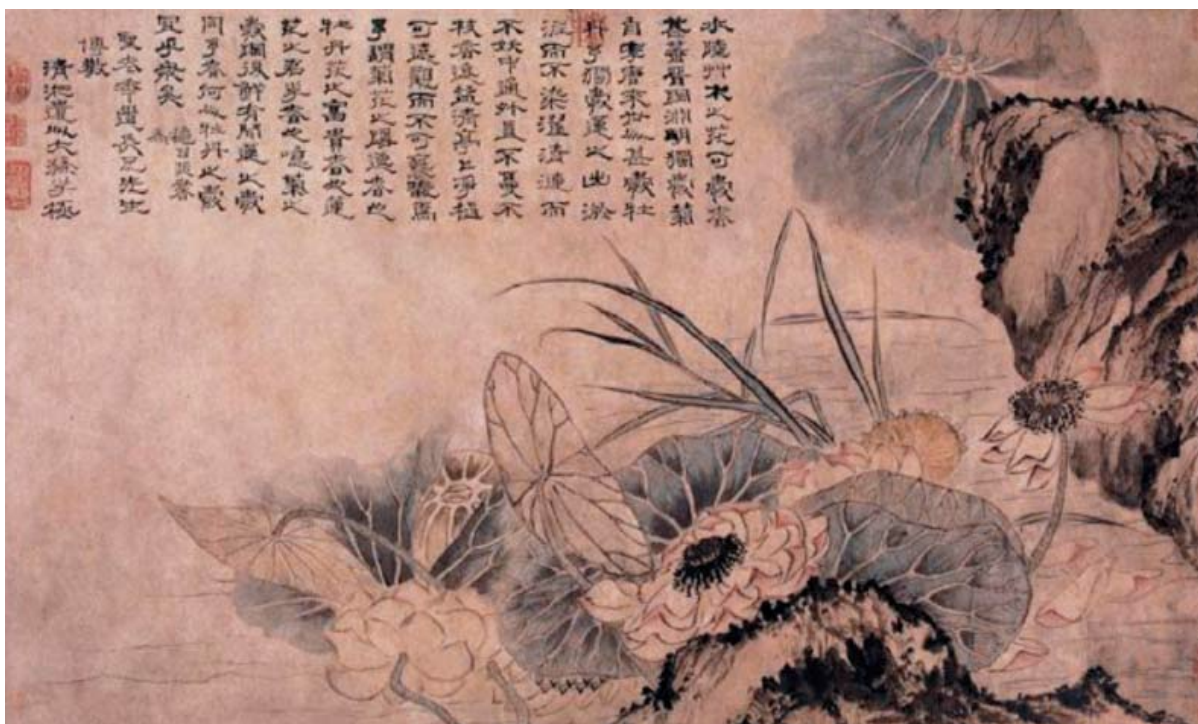 水陸艸木之花可愛者
甚蕃晉陶淵明獨愛菊
自李唐來世人甚愛牡
丹予獨愛蓮之出淤
泥而不染濯清漣而
不妖中通外直不蔓不
枝香遠益清亭〻淨植
可遠觀而不可褻翫焉
予謂菊花之隱逸者也
牡丹花之富貴者也蓮
花之君子者也噫菊之
愛陶後鮮有聞蓮之愛
同予者何人牡丹之愛
宜乎衆矣
道長兄先生
博教
清湘遺人大滌子極